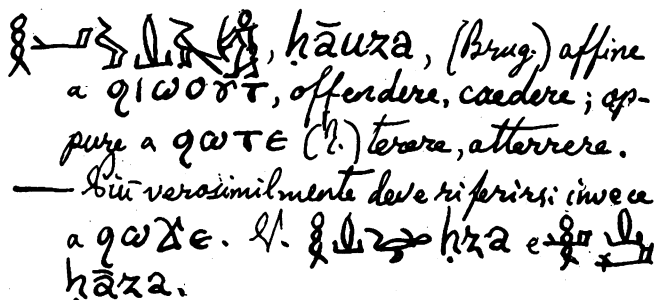 , ḥāuza, (Brug.) affine
a ϥⲓⲱⲟⲩⲧ, offendere, caedere; op-
pure a ϥⲱⲧⲉ (?.) terere, atterrere.
— Più verosimilmente deve riferirsi invece
a ϥⲱϫⲉ. V. ḥza e
ḥāza.